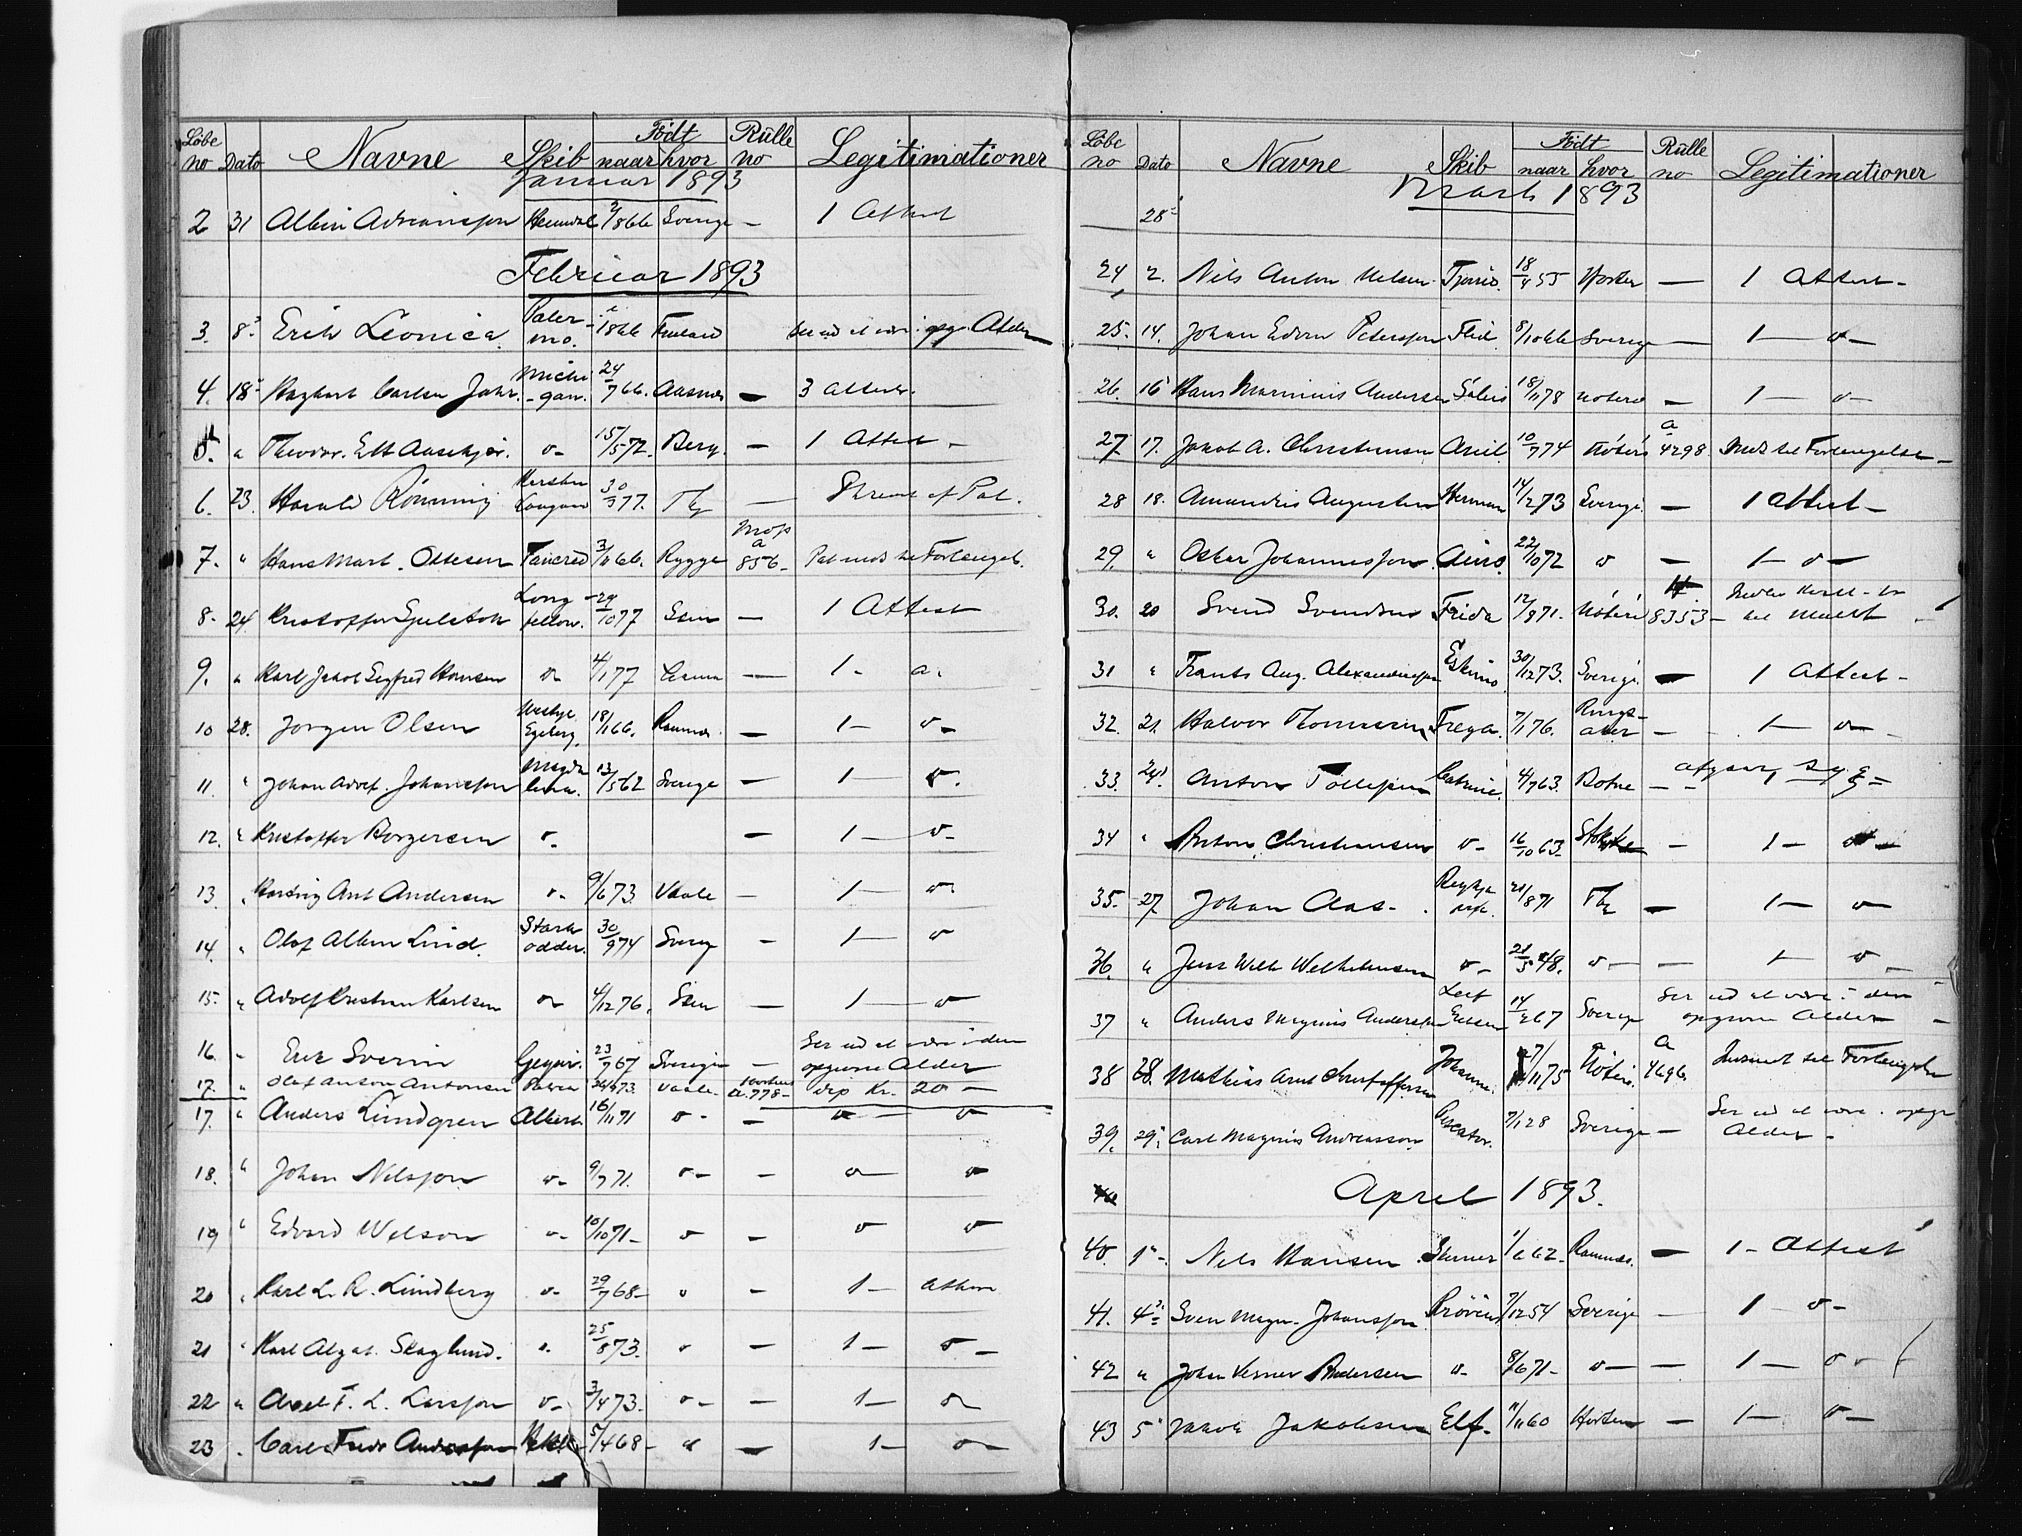 Löbe no Dato Navne Skib Födt naar hvor Rülle no Legitimationer
Januar 1893
2 31 Albin Adriansson Heimdal 2/1866 Sverige - 1 Attest
Februar 1893
3. 8 Erik Leonica Palermo. 1866 Finland Ser ud at være i opgr. Alder
4. 18 Hagbart Carlsen Jahr. Michigan. 24/7 66. Aasnes - 3 attester.
5. " Theodor. Ell Aaseskjær. o- 15/5 72. Berg. - 1 Attest -
6. 23. Harald Rönning 30/3 77. Tbg -
7. " Hans Mart. Ottesen Tancred 3/11 66. Rygge a 856- Pat inds til Forlænget.
8. 24. Kristoffer Longfellow. 29/10 77 Sem - 1 Attest
9. " Karl Jakob Sigfred Hansen o- 4/1 77 - 1- a.
10 28. Jorgen Olsen Egeberg 18/1 66. Ramnes. - 1- o-
11. " Johan Adolf. Johansson Magdalena. 13/5 62 Sverige - 1- o-
12. " Kristoffer Borgersen o- - 1- o-
13. " Ant Andersen o- 9/6 73 Vaale - 1- o-
14. " Olof Albin Lind. Starkodder. 30/9 74 Sverig - 1- o
15. " Adolf Kristian Karlsen o- 4/12 76. Sem - 1- o
16. - Erik Sverin 23/7 67 Sverige - Ser ud at være i den opgivne Alder
17. " Olaf Anton Antonsen Patria 24/6 73. Vaale. a. 778- dep Kr. 20 -
17. " Anders Lundgren Albert 16/11 71 o- - o- o
18. " Johan Nilsson o- 9/7 71. o- - o- o
19 " Edvard Welson o- 10/10 71- o - o o
20 " Karl L. R. Lindberg o- 29/7 68- o - 1- Attest
21 " Karl Skoglund. o. 25/8 73. o - 1- o-
22 " Axel F. L. Larsson o- 3/4 73. o- - 1- o
23 . Carl Fredr Andersson 5/4 68- o - 1- o-
Löbe no Dato Navne Skib Födt naar hvor Rülle no Legitimationer
Marts 1893
28
24 2. Nils Anton Nelsen 18/4 55 - 1 Attest-
25. 14. Johan Edvin Petersson Flid. 8/10 66 Sverige - 1- o-
26. 16 Hans Marinius Andersen Sólid 18/11 78 Nöterö - 1- o-
27. 17. Jakob A. Christensen Ariel 10/7 74 Nöterö a 4298 Inds til Forlængelse-
28 18. Amandus Augustin Herman 14/2 73 Sverige. - 1 Attest-
29. " Oskar Johannesson Aino. 22/10 72 o - 1- o-
30. 20 Svend Svendsen Frida 12/8 71. Nöterö 8353-
31 " Frants Aug. Alexandersson Eskimo 30/12 73. Sverige. - 1 Attest-
32. 21. Halvor Thommesen Freya. 7/1 76. Ringsaker - 1- o-
33. 24 Anton Tollefsen Catrine. 4/7 63. Botne - -
34 " Anton Christiansen o- 16/10 63- Stokke - 1- o-
35. 27. Johan Aas- 21/8 71 Tbg - 1- o
36. " Jens Wilh Wilhelmsen o- 21/5 48. o- - 1- o-
37 " Anders Magnus Andersson Leif Eriksen 14/2 67 Sverige Ser ud at være i den opgivne Alder -
38 28. Mathias Arnt Christoffersen Johanne. 7/11 75 Nöterö. a 4696. Indsendt til Forlængelse
39. 29. Carl Magnus Andreasson. 7/1 28 Sverige - Ser ud at være i opgr Alder-
April 1893.
40. 1 - Nils Hansen 1/6 62- Ramnes. - 1- Attest
41. 4 Sven Magn. Johansson Pröven 7/12 54 Sverige - 1- o-
42 " Johan Verner Andersen o- 8/6 71- o- - 1- o-
43 5 Jakob Jakobsen Elf- 11/11 60 Horten - 1- o-